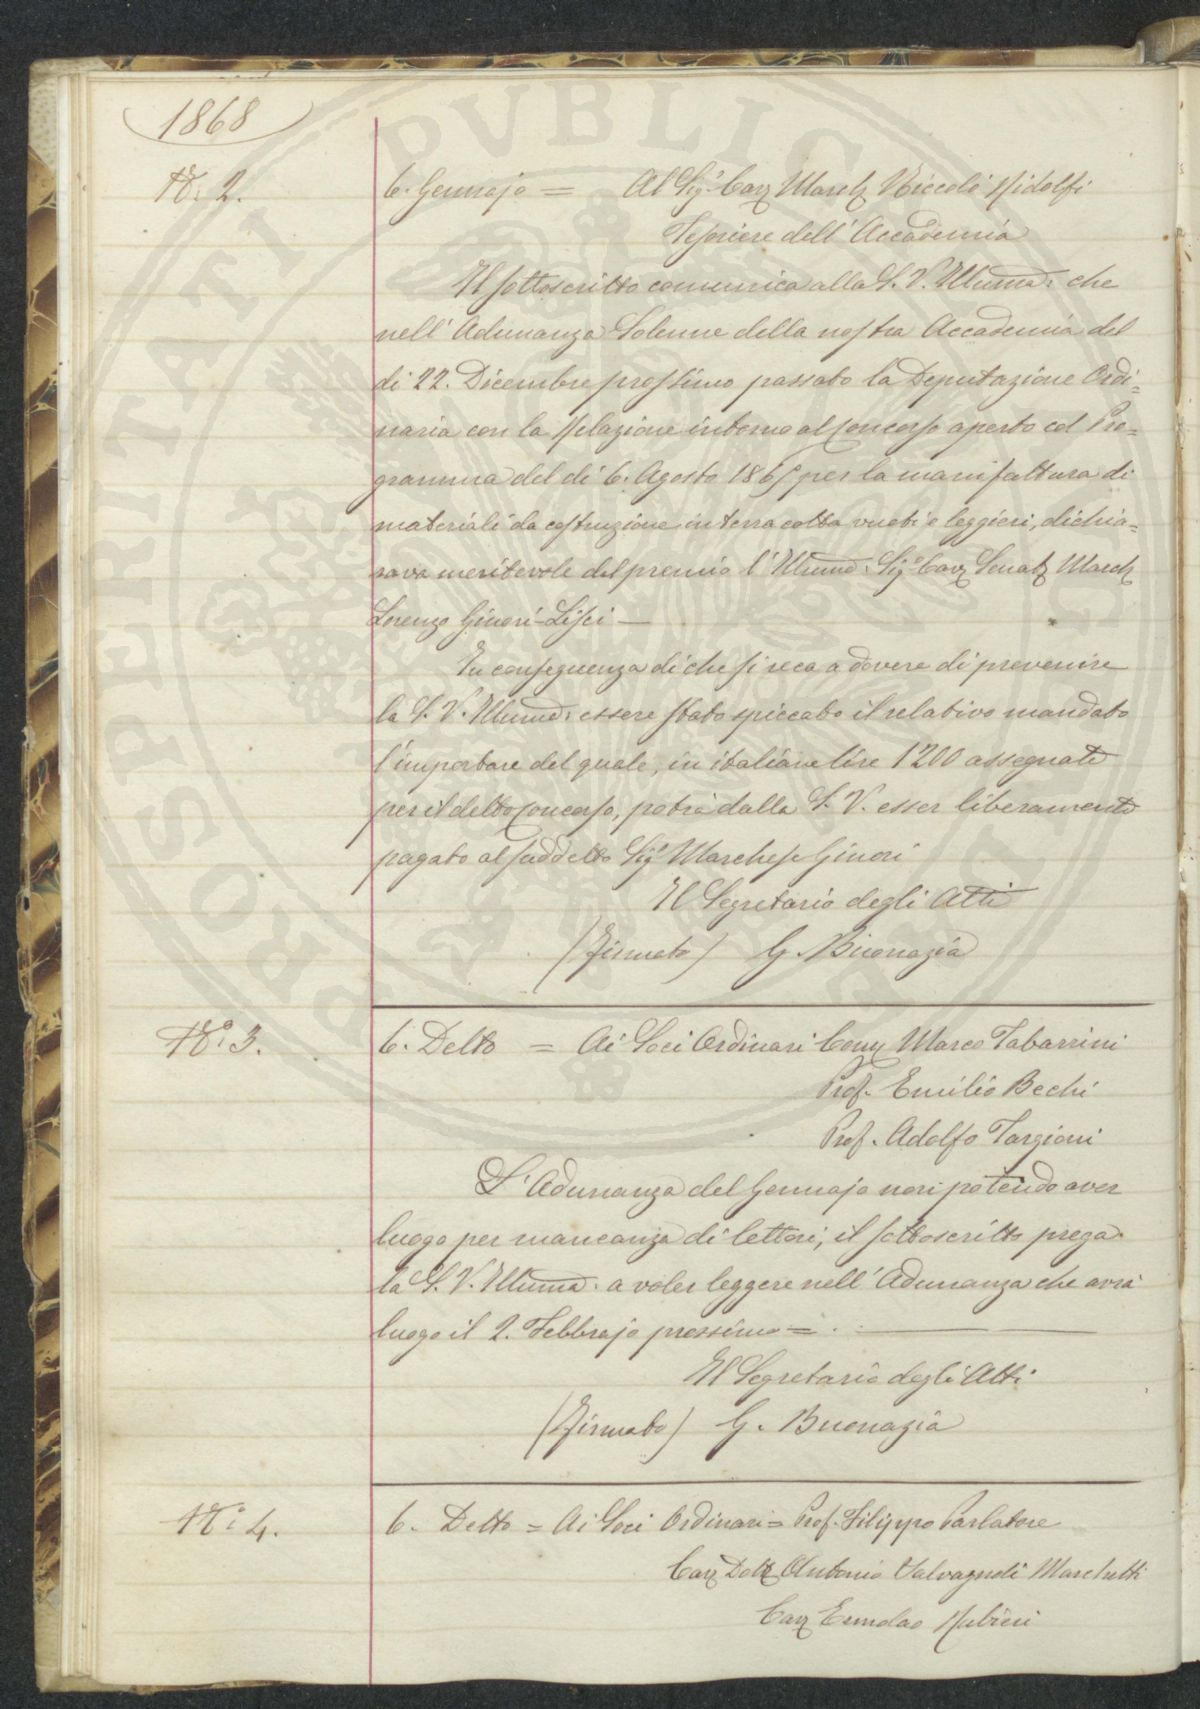 1868
N.º 2.
6. Gennajo = Al Sig.r Cav. March. Niccolò Ridolfi
Tesoriere dell' Accademia
Il sottoscritto comunica alla S. V. Illuma: che
nell' Adunanza Solenne della nostra Accademia del
di 22. Dicembre prossimo passato la Deputazione Ordi=
naria con la Relazione intorno al Concorso aperto col Pro=
gramma del di 6. Agosto 1865 per la manifattura di
materiali da costruzione in terra cotta vuoti e leggieri, dichia=
rava meritevole del premio l' Illumo: Sig.r Cav. Senat. March.
Lorenzo Ginori-Lisci —
In conseguenza di che si reca a dovere di prevenire
la S. V. Illuma: essere stato spiccato il relativo mandato
l'importare del quale, in italiane lire 1200 assegnate
per il detto Concorso, potrà dalla S. V. esser liberamente
pagato al suddetto Sig.r Marchese Ginori
Il Segretario degli Atti
(Firmato) G. Buonazia
N.º 3.
6. Detto = Ai Soci Ordinari Comm. Marco Tabarrini
Prof. Emilio Bechi
Prof. Adolfo Targioni
L' Adunanza del Gennajo non potendo aver
luogo per mancanza di lettori, il sottoscritto prega
la S. V. Illuma. a voler leggere nell' Adunanza che avrà
luogo il 2. Febbrajo prossimo =
Il Segretario degli Atti
(Firmato) G. Buonazia
N.º 4.
6. Detto = Ai Soci Ordinari = Prof. Filippo Parlatore
Cav. Dott. Antonio Salvagnoli Marchetti
Cav. Ermolao Rubieri
PROSPERITATI PVBLICAE